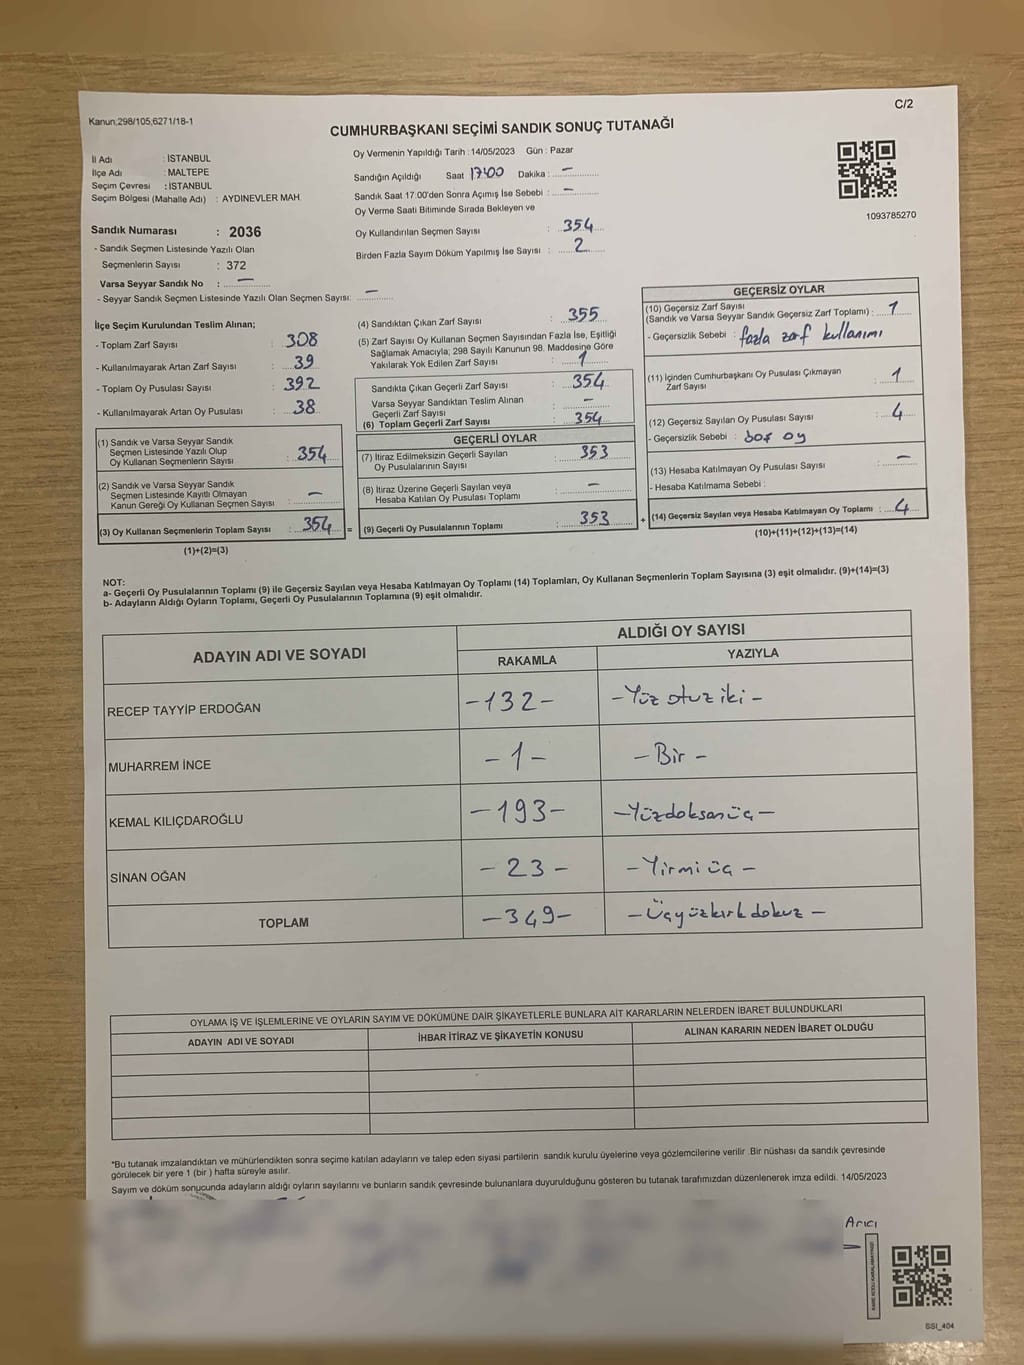 C/2
Kanun;298/105,6271/18-1
CUMHURBAŞKANI SEÇİMİ SANDIK SONUÇ TUTANAĞI
İl Adı : İSTANBUL
İlçe Adı : MALTEPE
Seçim Çevresi : İSTANBUL
Seçim Bölgesi (Mahalle Adı) : AYDINEVLER MAH
Oy Vermenin Yapıldığı Tarih :14/05/2023 Gün : Pazar
Sandığın Açıldığı Saat 17:00 Dakika : —
Sandık Saat 17:00'den Sonra Açımış İse Sebebi : —
Oy Verme Saati Bitiminde Sırada Bekleyen ve
Oy Kullandırılan Seçmen Sayısı : 354
Birden Fazla Sayım Döküm Yapılmış İse Sayısı : 2
1093785270
Sandık Numarası : 2036
- Sandık Seçmen Listesinde Yazılı Olan
Seçmenlerin Sayısı : 372
Varsa Seyyar Sandık No : —
- Seyyar Sandık Seçmen Listesinde Yazılı Olan Seçmen Sayısı: —
İlçe Seçim Kurulundan Teslim Alınan;
- Toplam Zarf Sayısı : 308
- Kullanılmayarak Artan Zarf Sayısı : 39
- Toplam Oy Pusulası Sayısı : 392
- Kullanılmayarak Artan Oy Pusulası : 38
(1) Sandık ve Varsa Seyyar Sandık
Seçmen Listesinde Yazılı Olup
Oy Kullanan Seçmenlerin Sayısı : 354
(2) Sandık ve Varsa Seyyar Sandık
Seçmen Listesinde Kayıtlı Olmayan
Kanun Gereği Oy Kullanan Seçmen Sayısı : —
(3) Oy Kullanan Seçmenlerin Toplam Sayısı : 354 =
(1)+(2)=(3)
(4) Sandıktan Çıkan Zarf Sayısı : 355
(5) Zarf Sayısı Oy Kullanan Seçmen Sayısından Fazla İse, Eşitliği
Sağlamak Amacıyla; 298 Sayılı Kanunun 98. Maddesine Göre
Yakılarak Yok Edilen Zarf Sayısı : 1
Sandıkta Çıkan Geçerli Zarf Sayısı : 354
Varsa Seyyar Sandıktan Teslim Alınan
Geçerli Zarf Sayısı : —
(6) Toplam Geçerli Zarf Sayısı : 354
GEÇERLİ OYLAR
(7) İtiraz Edilmeksizin Geçerli Sayılan
Oy Pusulalarının Sayısı : 353
(8) İtiraz Üzerine Geçerli Sayılan veya
Hesaba Katılan Oy Pusulası Toplamı : —
(9) Geçerli Oy Pusulalarının Toplamı : 353 +
GEÇERSİZ OYLAR
(10) Geçersiz Zarf Sayısı
(Sandık ve Varsa Seyyar Sandık Geçersiz Zarf Toplamı) : 1
- Geçersizlik Sebebi : fazla zarf kullanımı
(11) İçinden Cumhurbaşkanı Oy Pusulası Çıkmayan
Zarf Sayısı : 1
(12) Geçersiz Sayılan Oy Pusulası Sayısı : 4
- Geçersizlik Sebebi : boş oy
(13) Hesaba Katılmayan Oy Pusulası Sayısı : —
- Hesaba Katılmama Sebebi :
(14) Geçersiz Sayılan veya Hesaba Katılmayan Oy Toplamı : 4
(10)+(11)+(12)+(13)=(14)
NOT:
a- Geçerli Oy Pusulalarının Toplamı (9) ile Geçersiz Sayılan veya Hesaba Katılmayan Oy Toplamı (14) Toplamları, Oy Kullanan Seçmenlerin Toplam Sayısına (3) eşit olmalıdır. (9)+(14)=(3)
b- Adayların Aldığı Oyların Toplamı, Geçerli Oy Pusulalarının Toplamına (9) eşit olmalıdır.
ADAYIN ADI VE SOYADI
ALDIĞI OY SAYISI
RAKAMLA YAZIYLA
RECEP TAYYİP ERDOĞAN -132- -Yüz otuz iki-
MUHARREM İNCE -1- -Bir-
KEMAL KILIÇDAROĞLU -193- -Yüzdoksanüç-
SİNAN OĞAN -23- -Yirmi üç-
TOPLAM -349- -Üçyüzkırkdokuz-
OYLAMA İŞ VE İŞLEMLERİNE VE OYLARIN SAYIM VE DÖKÜMÜNE DAİR ŞİKAYETLERLE BUNLARA AİT KARARLARIN NELERDEN İBARET BULUNDUKLARI
ADAYIN ADI VE SOYADI İHBAR İTİRAZ VE ŞİKAYETİN KONUSU ALINAN KARARIN NEDEN İBARET OLDUĞU
*Bu tutanak imzalandıktan ve mühürlendikten sonra seçime katılan adayların ve talep eden siyasi partilerin sandık kurulu üyelerine veya gözlemcilerine verilir .Bir nüshası da sandık çevresinde
görülecek bir yere 1 (bir ) hafta süreyle asılır.
Sayım ve döküm sonucunda adayların aldığı oyların sayılarını ve bunların sandık çevresinde bulunanlara duyurulduğunu gösteren bu tutanak tarafımızdan düzenlenerek imza edildi. 14/05/2023
Arıcı
KARE KODU KARALAMAYINIZ!
SSI_404